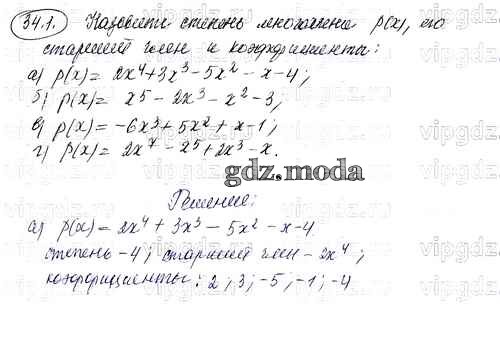 34.1. Назовите степень многочлена p(x), его
старший член и коэффициенты:
а) p(x) = 2x⁴+3x³-5x²-x-4;
б) p(x) = x5-2x³-x²-3;
в) p(x) = -6x³+5x²+x-1;
г) p(x) = 2x⁷-2⁵+2x³-x.
gdz.moda
Решение:
а) p(x)=2x⁴+3x³-5x²-x-4
степень -4; старший член - 2x⁴;
коэффициенты: 2; 3; -5; -1; -4
vipgdz